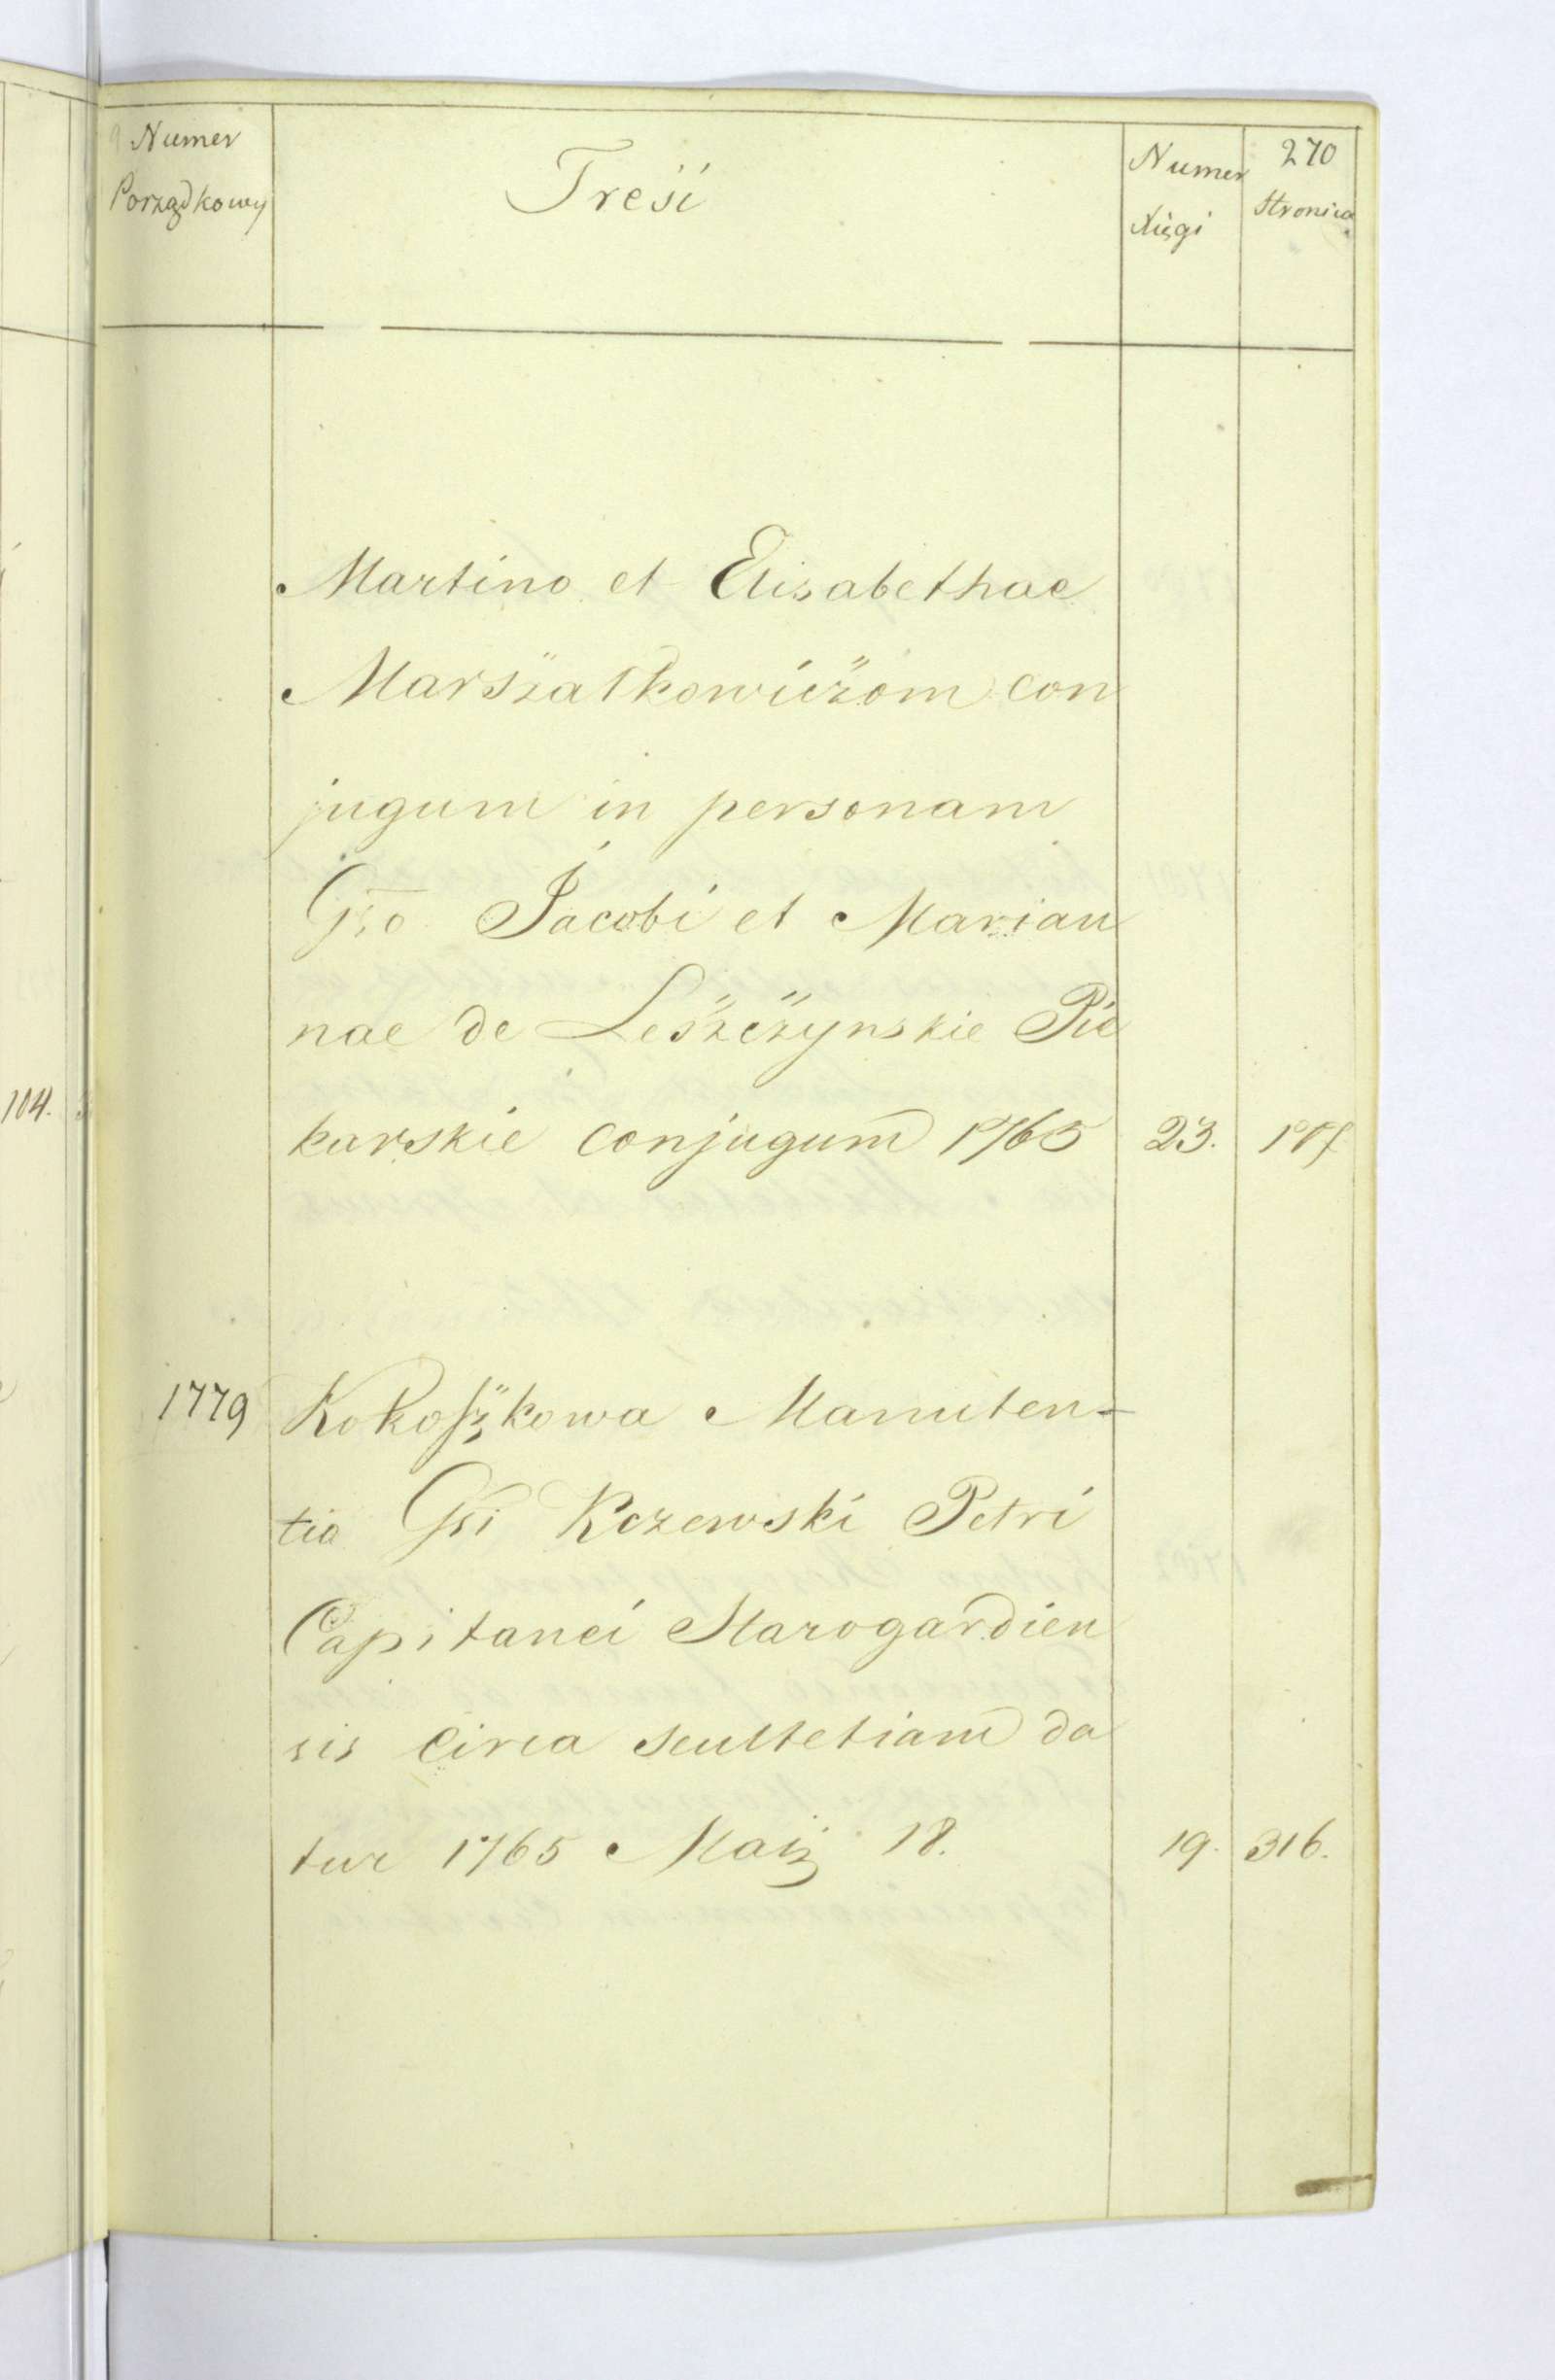 Numer Porządkowy
Treść
Numer Xięgi
270
Stronica
Martino et Elisabethae
Marszatkowiczom con
jugum in personam
Gso Jacobi et Marian
nae de Leszczynskie Pie
karskie conjugum 1765 23.
104.
1779 Kokoszkowa Manuten-
tia Gsi Kczewski Petri
Capitanei Starogardien
sis circa scultetiam da
tur 1765 Maij 18. 19. 316.